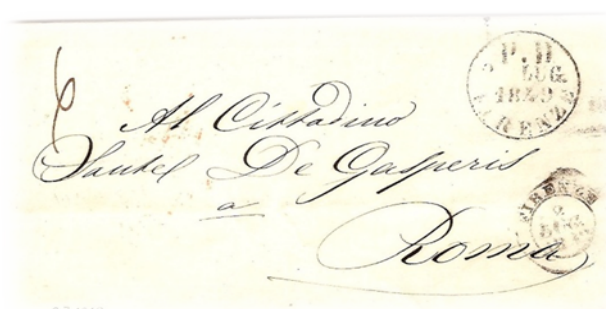 6
P. D
LUG.
1849
FIRENZE
Al Cittadino
De Gasperis
a
Roma
FIRENZE
2
LUG